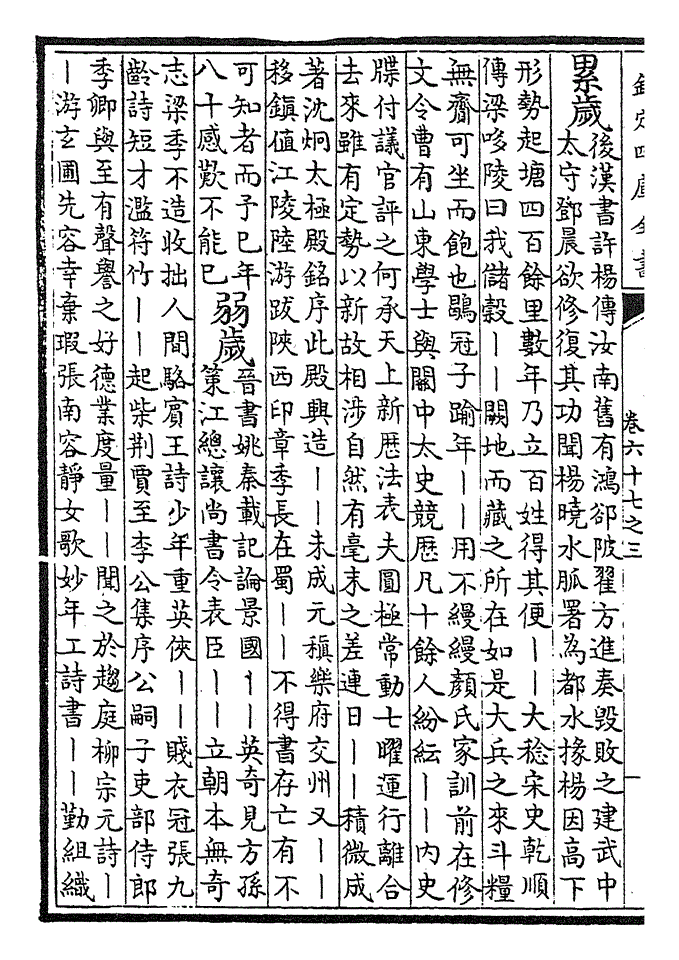 欽定四庫全書
卷六十七之三
累歲
後漢書許楊傳汝南舊有鴻郤陂翟方進奏毀敗之建武中
太守鄧晨欲修復其功聞楊曉水脈署為都水掾楊因高下
形勢起塘四百餘里數年乃立百姓得其便――大稔宋史乾順
傳梁哆陵曰我儲穀――闕地而藏之所在如是大兵之來斗糧
無齎可坐而飽也鶡冠子踰年――用不縵縵顔氏家訓前在修
文令曹有山東學士與關中太史競歴凡十餘人紛紜――内史
牒付議官評之何承天上新歴法表夫圓極常動七曜運行離合
去來雖有定勢以新故相涉自然有毫末之差連日――積微成
著沈炯太極殿銘序此殿興造――未成元稹樂府交州又――
移鎮值江陵陸游跋陜西印章季長在蜀――不得書存亡有不
可知者而予已年
八十感歎不能已
弱歲
晉書姚秦載記論景國――英奇見方孫
策江總讓尚書令表臣――立朝本無奇
志梁季不造收拙人間駱賓王詩少年重英俠――賤衣冠張九
齡詩短才濫符竹――起柴荆賈至李公集序公嗣子吏部侍郎
季卿與至有聲譽之好德業度量――聞之於趨庭柳宗元詩―
―游玄圃先容幸棄瑕張南容靜女歌妙年工詩書――勤組織